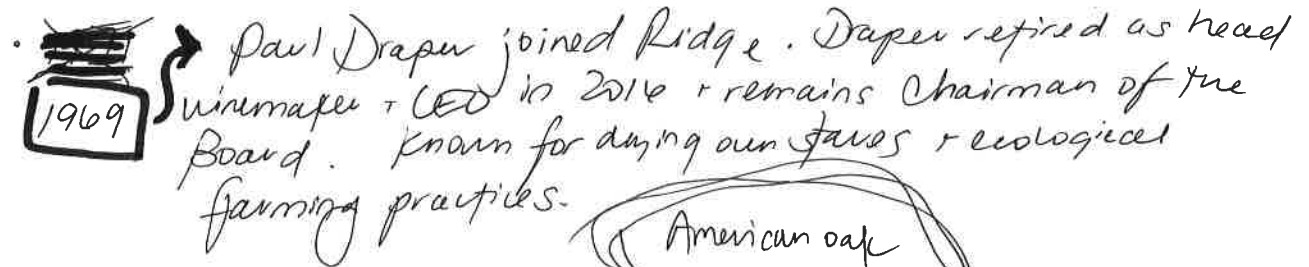 1969 Paul Draper joined Ridge. Draper retired as head
winemaker + CEO in 2016 + remains Chairman of the
Board. Known for drying own staves + ecological
farming practices.
American oak